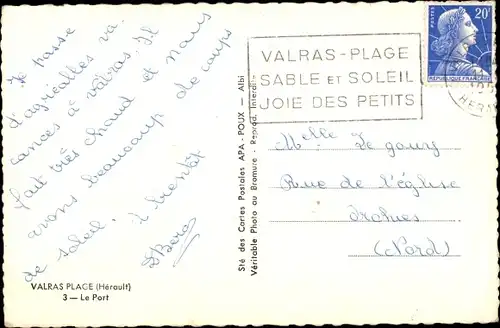 Je passe
d'agréables va
cances à valras. Il
fait très chaud et nous
avons beaucoup de coups
de soleil. à bientôt
VALRAS PLAGE (Hérault)
3 — Le Port
Sté des Cartes Postales APA-POUX — Albi
Véritable Photo au Bromure - Reprod. Interdite
VALRAS-PLAGE
SABLE ET SOLEIL
JOIE DES PETITS
20F
REPUBLIQUE FRANÇAISE
Melle Le goury
Rue de l'église
(Nord)